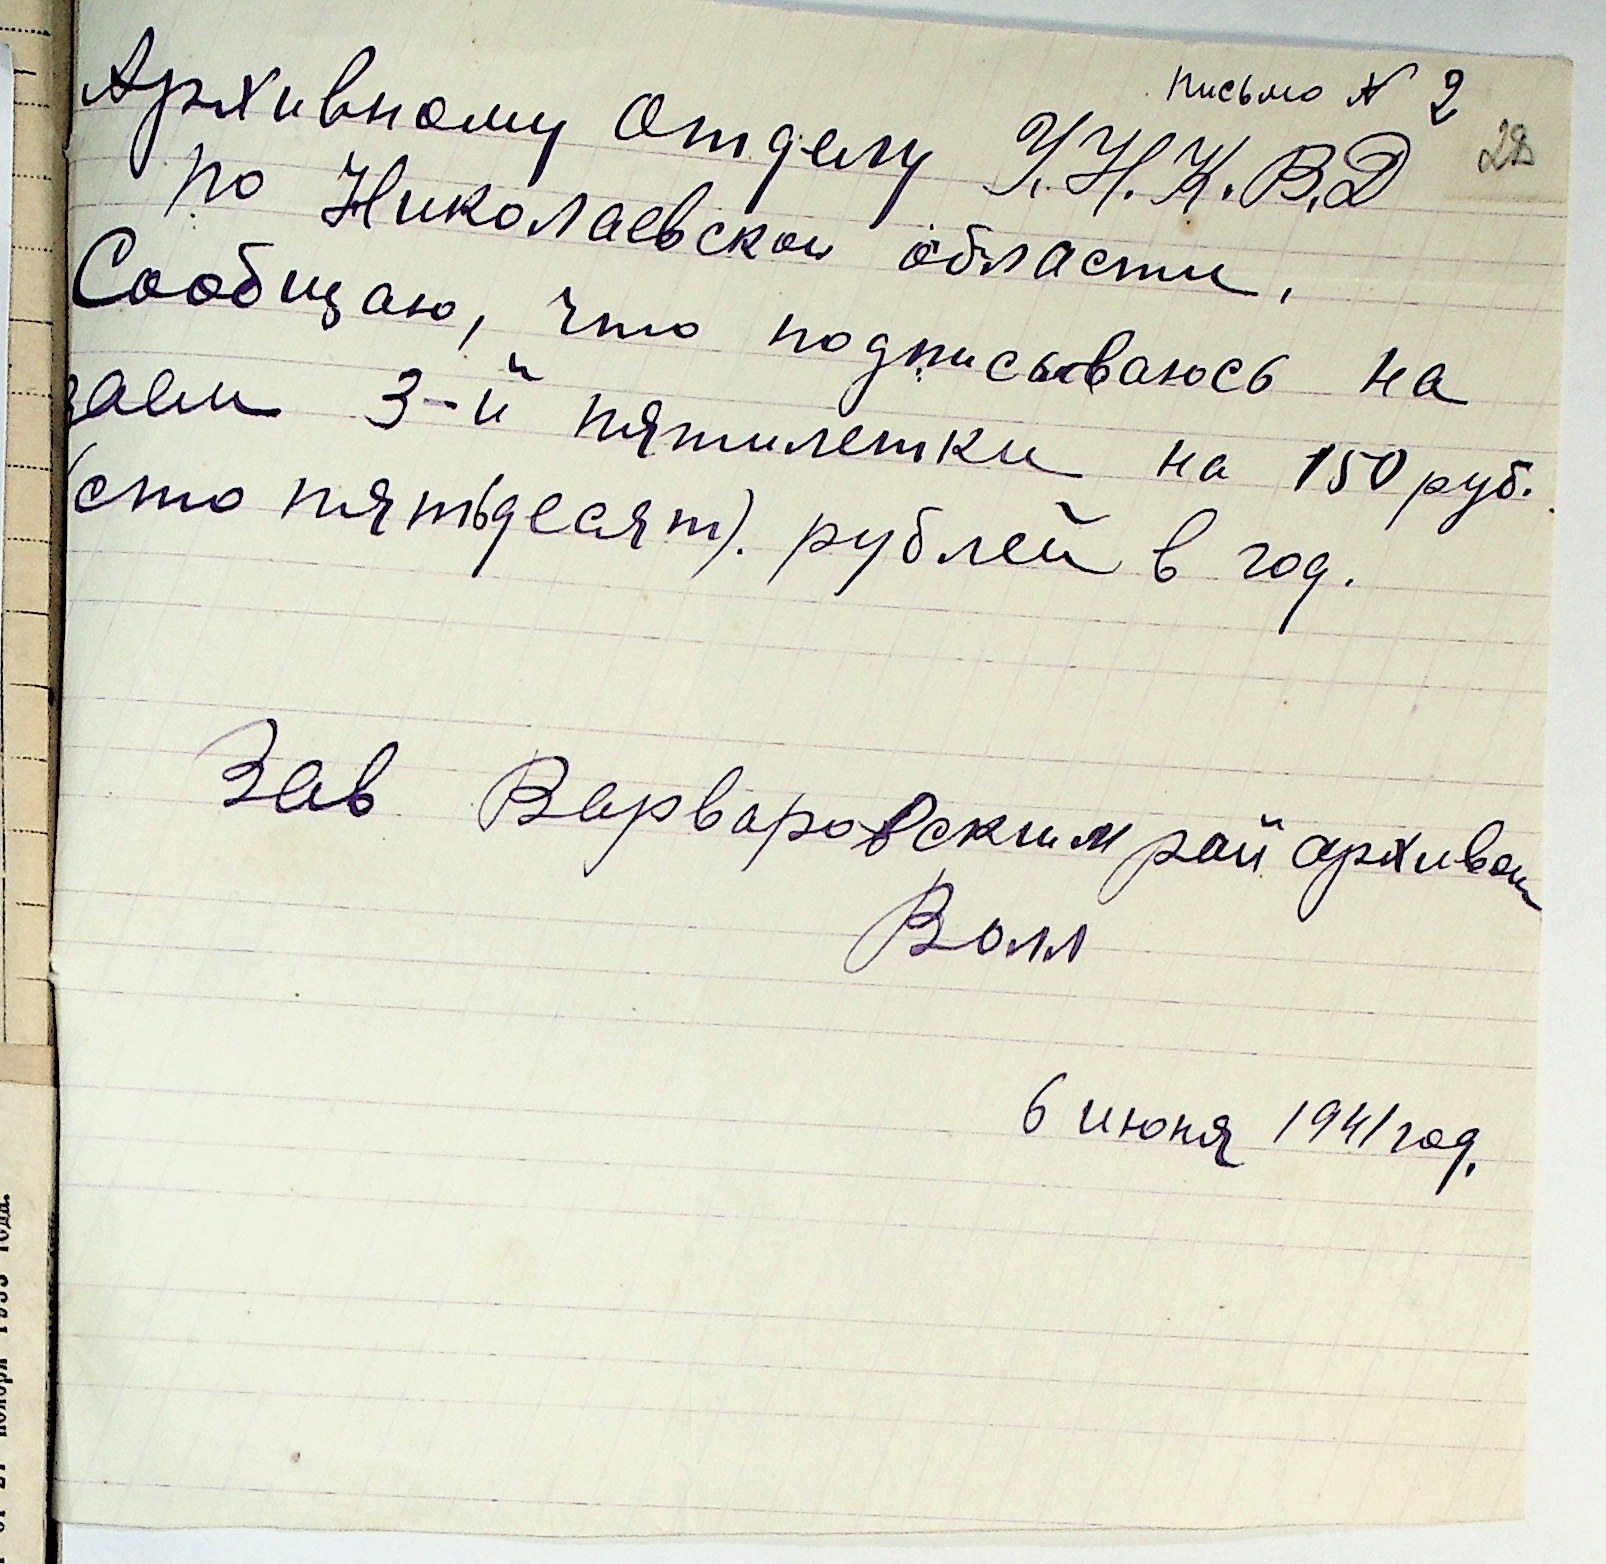 письмо № 2
28
Архивному отделу У.Н.К.В.Д
по Николаевской области.
Сообщаю, что подписываюсь на
заем 3-й пятилетки на 150 руб.
(сто пятьдесят). рублей в год.
Зав Варваровским рай архивом
Волл
6 июня 1941 год.